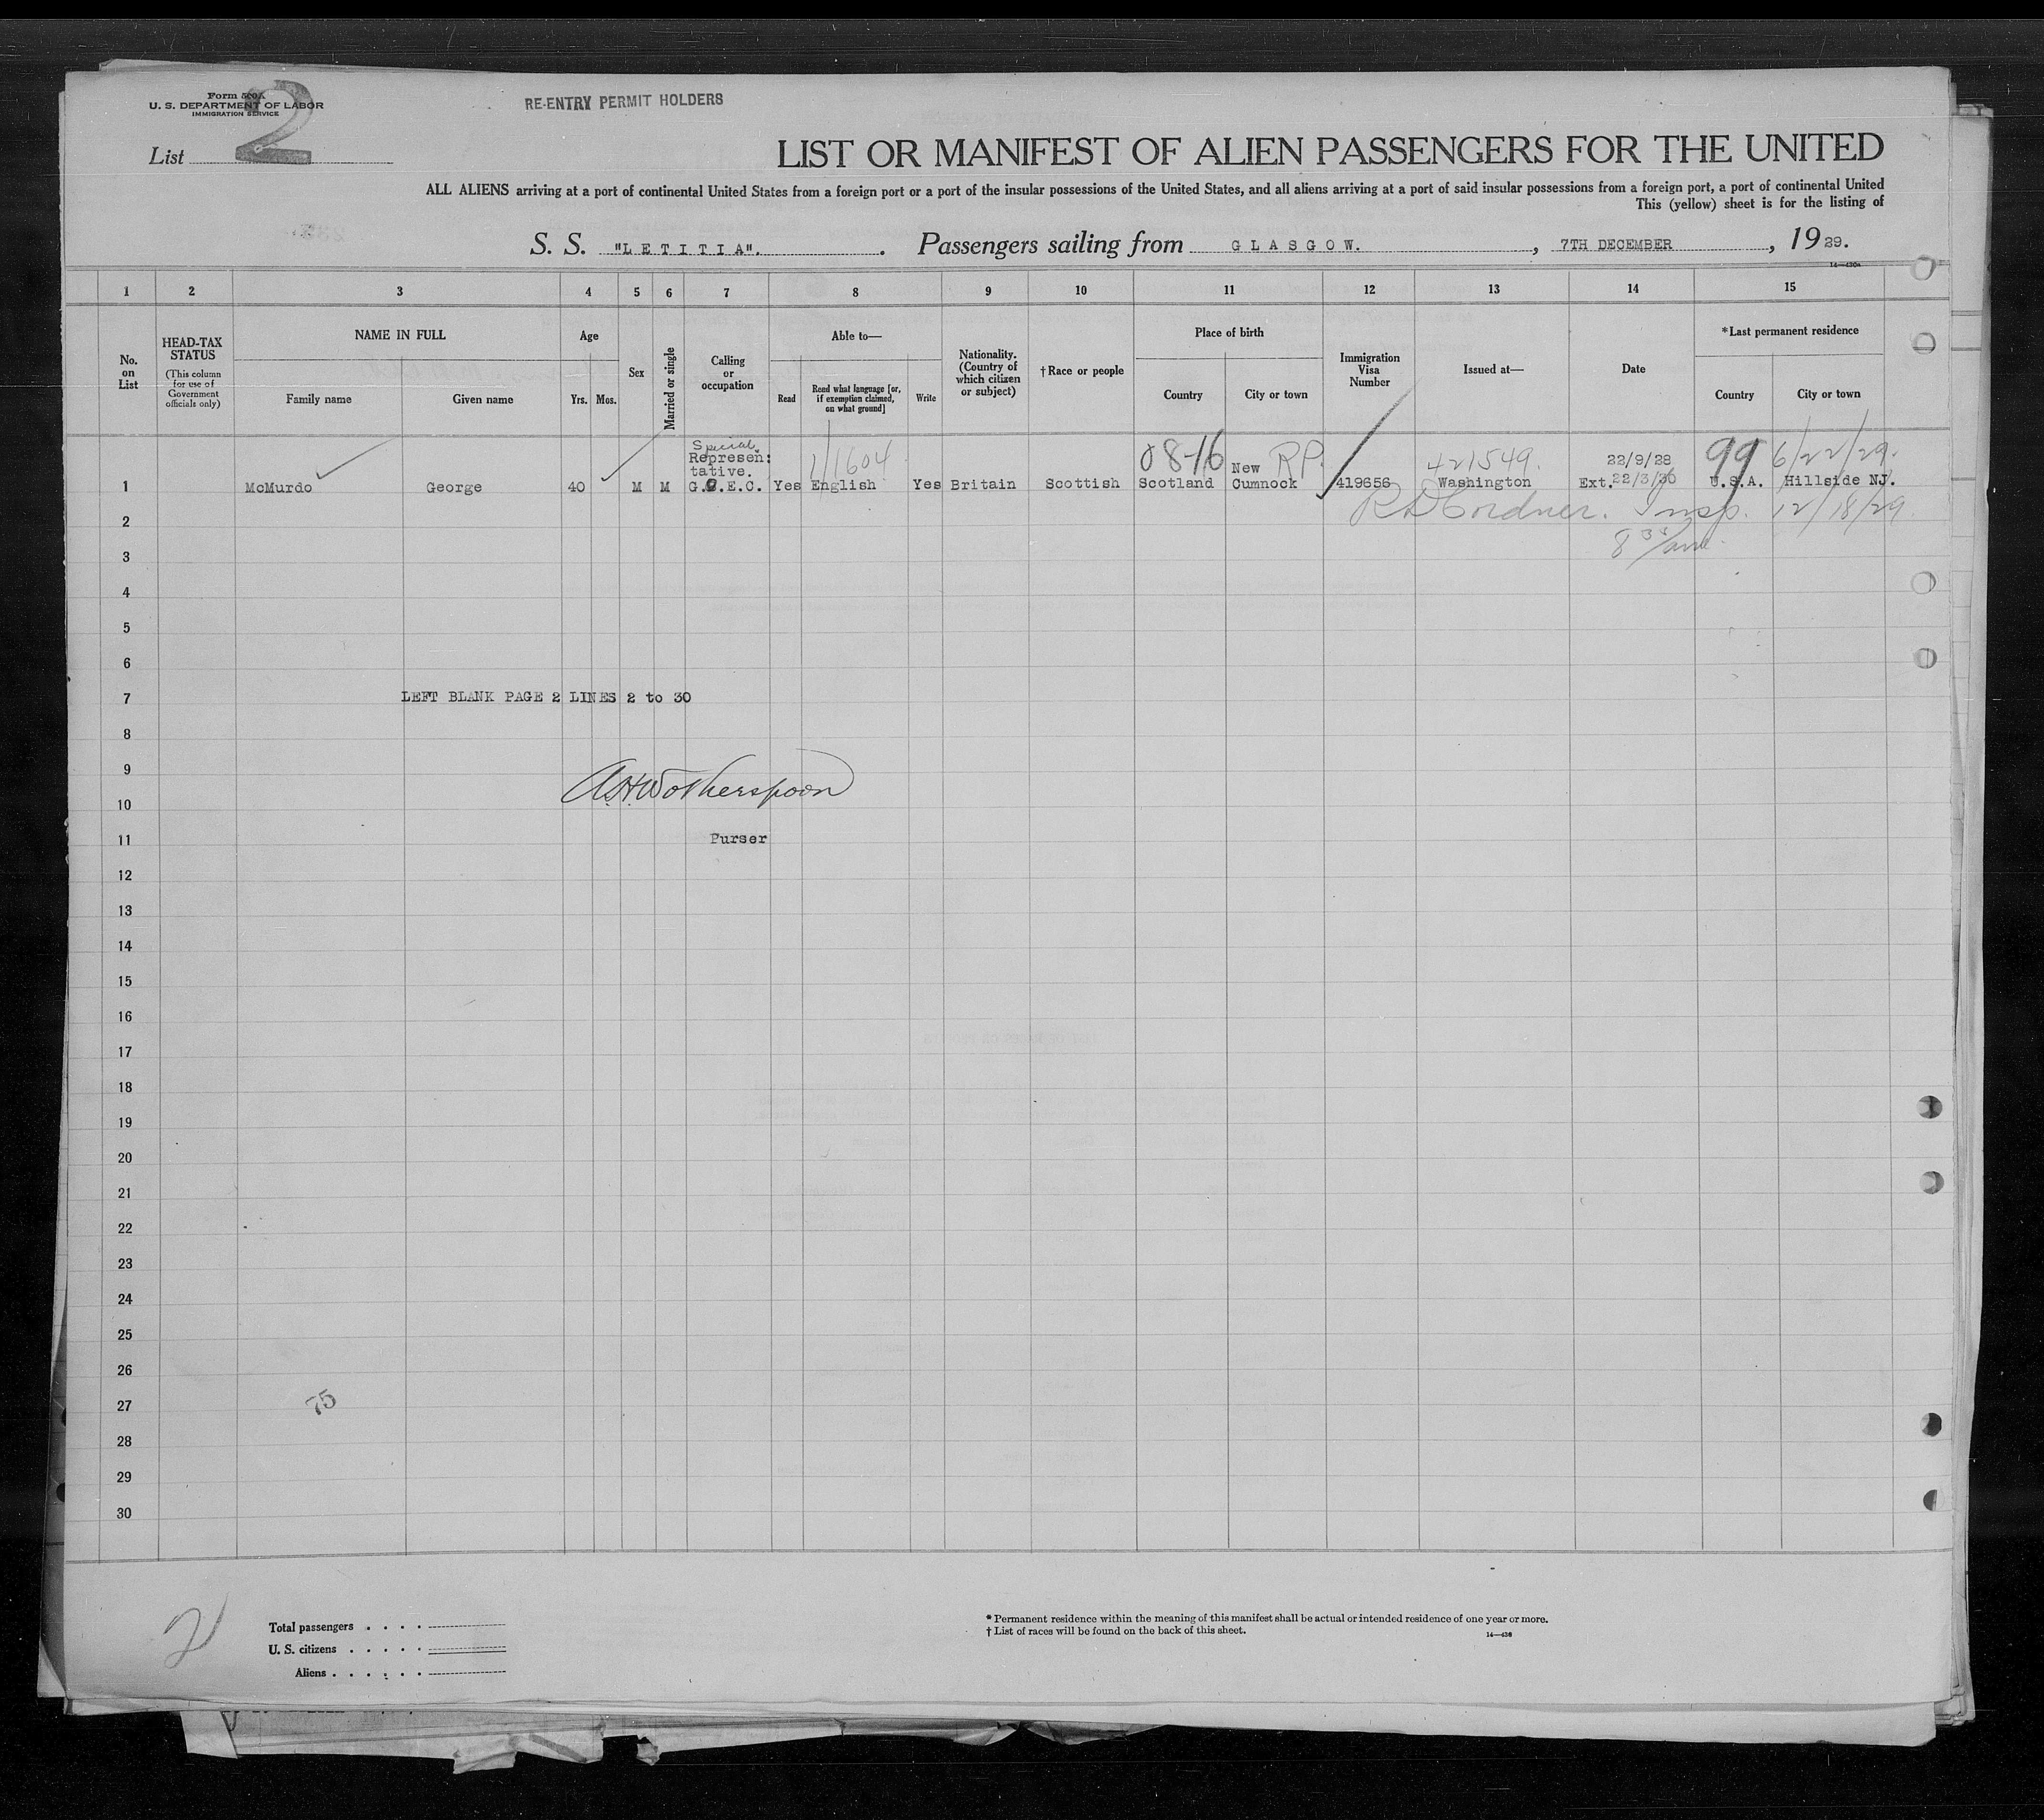 Form 500A
U. S. DEPARTMENT OF LABOR
IMMIGRATION SERVICE
RE-ENTRY PERMIT HOLDERS
List 2
LIST OR MANIFEST OF ALIEN PASSENGERS FOR THE UNITED
ALL ALIENS arriving at a port of continental United States from a foreign port or a port of the insular possessions of the United States, and all aliens arriving at a port of said insular possessions from a foreign port, a port of continental United
This (yellow) sheet is for the listing of
S. S. "LETITIA". Passengers sailing from GLASGOW. , 7TH DECEMBER , 1929.
1 2 3 4 5 6 7 8 9 10 11 12 13 14 15
No. on List
HEAD-TAX STATUS
(This column for use of Government officials only)
NAME IN FULL
Family name
Given name
Age
Yrs.
Mos.
Sex
Married or single
Calling or occupation
Able to—
Read
Read what language [or, if exemption claimed, on what ground]
Write
Nationality. (Country of which citizen or subject)
†Race or people
Place of birth
Country
City or town
Immigration Visa Number
Issued at—
Date
*Last permanent residence
Country
City or town
Special
Represen:
tative.
1/1604
08-16
RP.
421549.
22/9/28
99
6/22/29.
1 McMurdo George 40 M M G.E.C. Yes English Yes Britain Scottish Scotland New Cumnock 419656 Washington Ext. 22/3/30 U.S.A. Hillside NJ.
2
R D Cordner. Insp. 12/18/29
3
8 30/am
4
5
6
7 LEFT BLANK PAGE 2 LINES 2 to 30
8
9
A.H.Wotherspoon
10
11 Purser
12
13
14
15
16
17
18
19
20
21
22
23
24
25
26
27
75
28
29
30
2
Total passengers
U. S. citizens
Aliens
* Permanent residence within the meaning of this manifest shall be actual or intended residence of one year or more.
† List of races will be found on the back of this sheet.
14—430